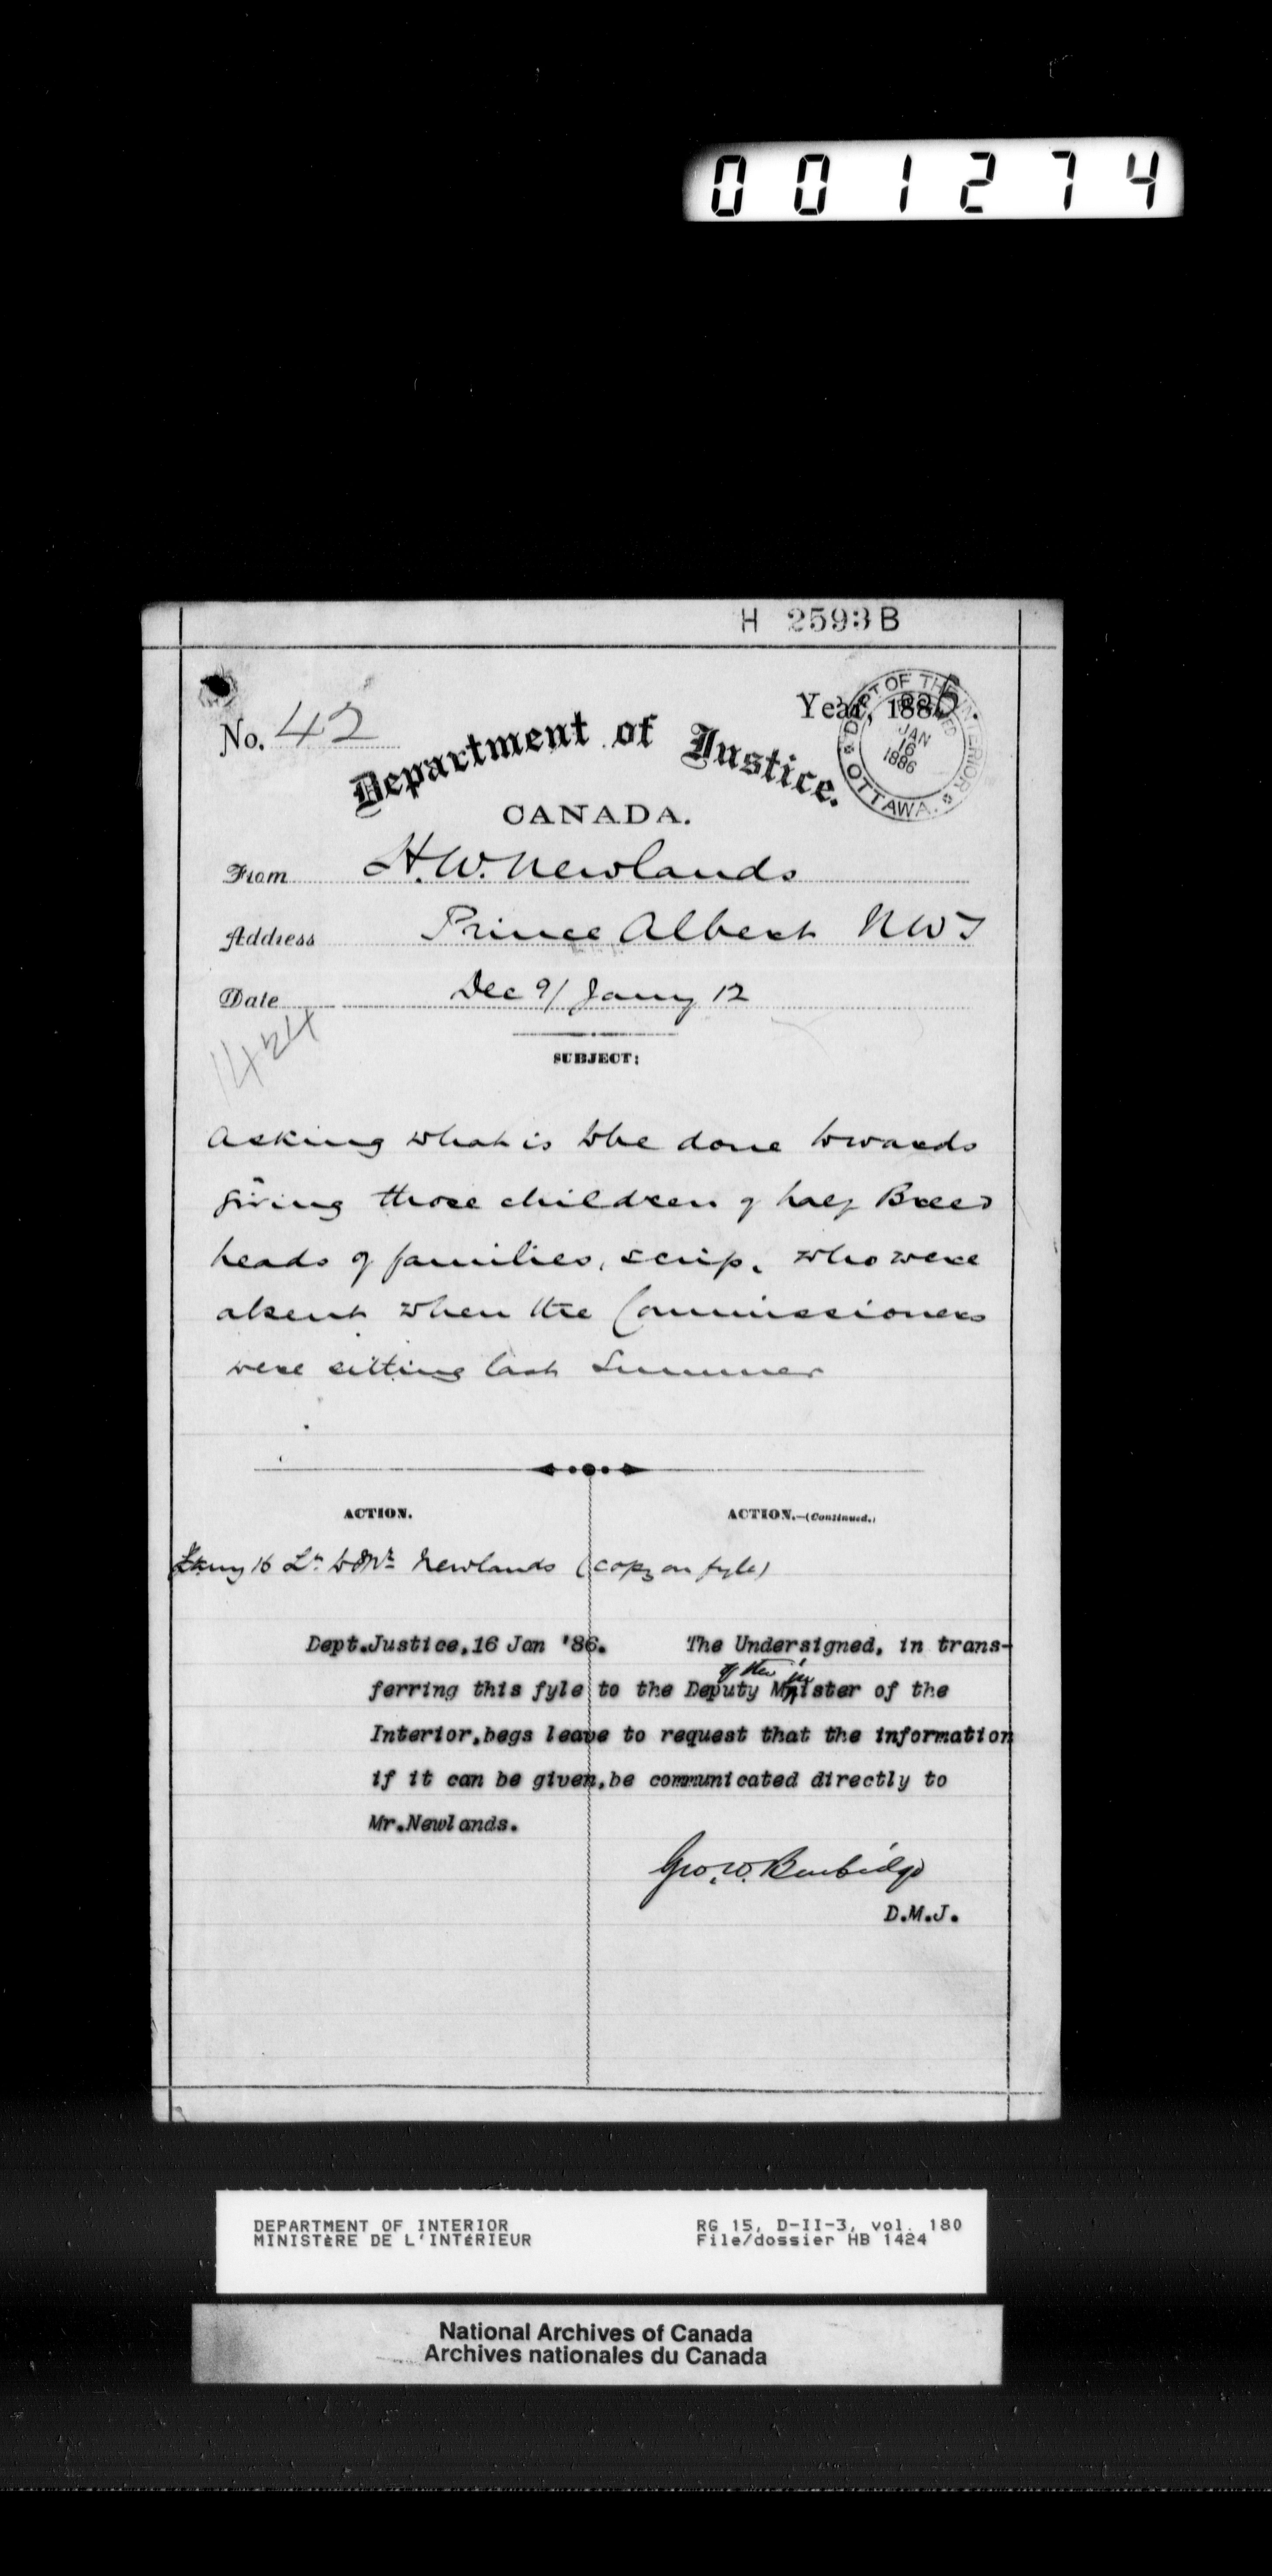 001274
H 2593 B
No. 42
Year, 1886.
DEPT OF THE INTERIOR
JAN
16
1886
OTTAWA.
Department of Justice.
CANADA.
From H. W. Newlands
Address Prince Albert NWT
Date Dec 9/ Jany 12
1424
SUBJECT:
Asking what is to be done towards
giving those children of half Breed
heads of families, scrip, who were
absent when the Commissioners
were sitting last Summer
ACTION.
ACTION.—(Continued.)
Jany 16 Lr to Mr Newlands (copy on fyle)
Dept.Justice,16 Jan '86. The Undersigned, in trans-
ferring this fyle to the Deputy Mnister of the
of the in
Interior,begs leave to request that the information
if it can be given,be communicated directly to
Mr.Newlands.
Geo. W. Burbidge
D.M.J.
DEPARTMENT OF INTERIOR
MINISTÈRE DE L'INTÉRIEUR
RG 15, D-II-3, vol. 180
File/dossier HB 1424
National Archives of Canada
Archives nationales du Canada